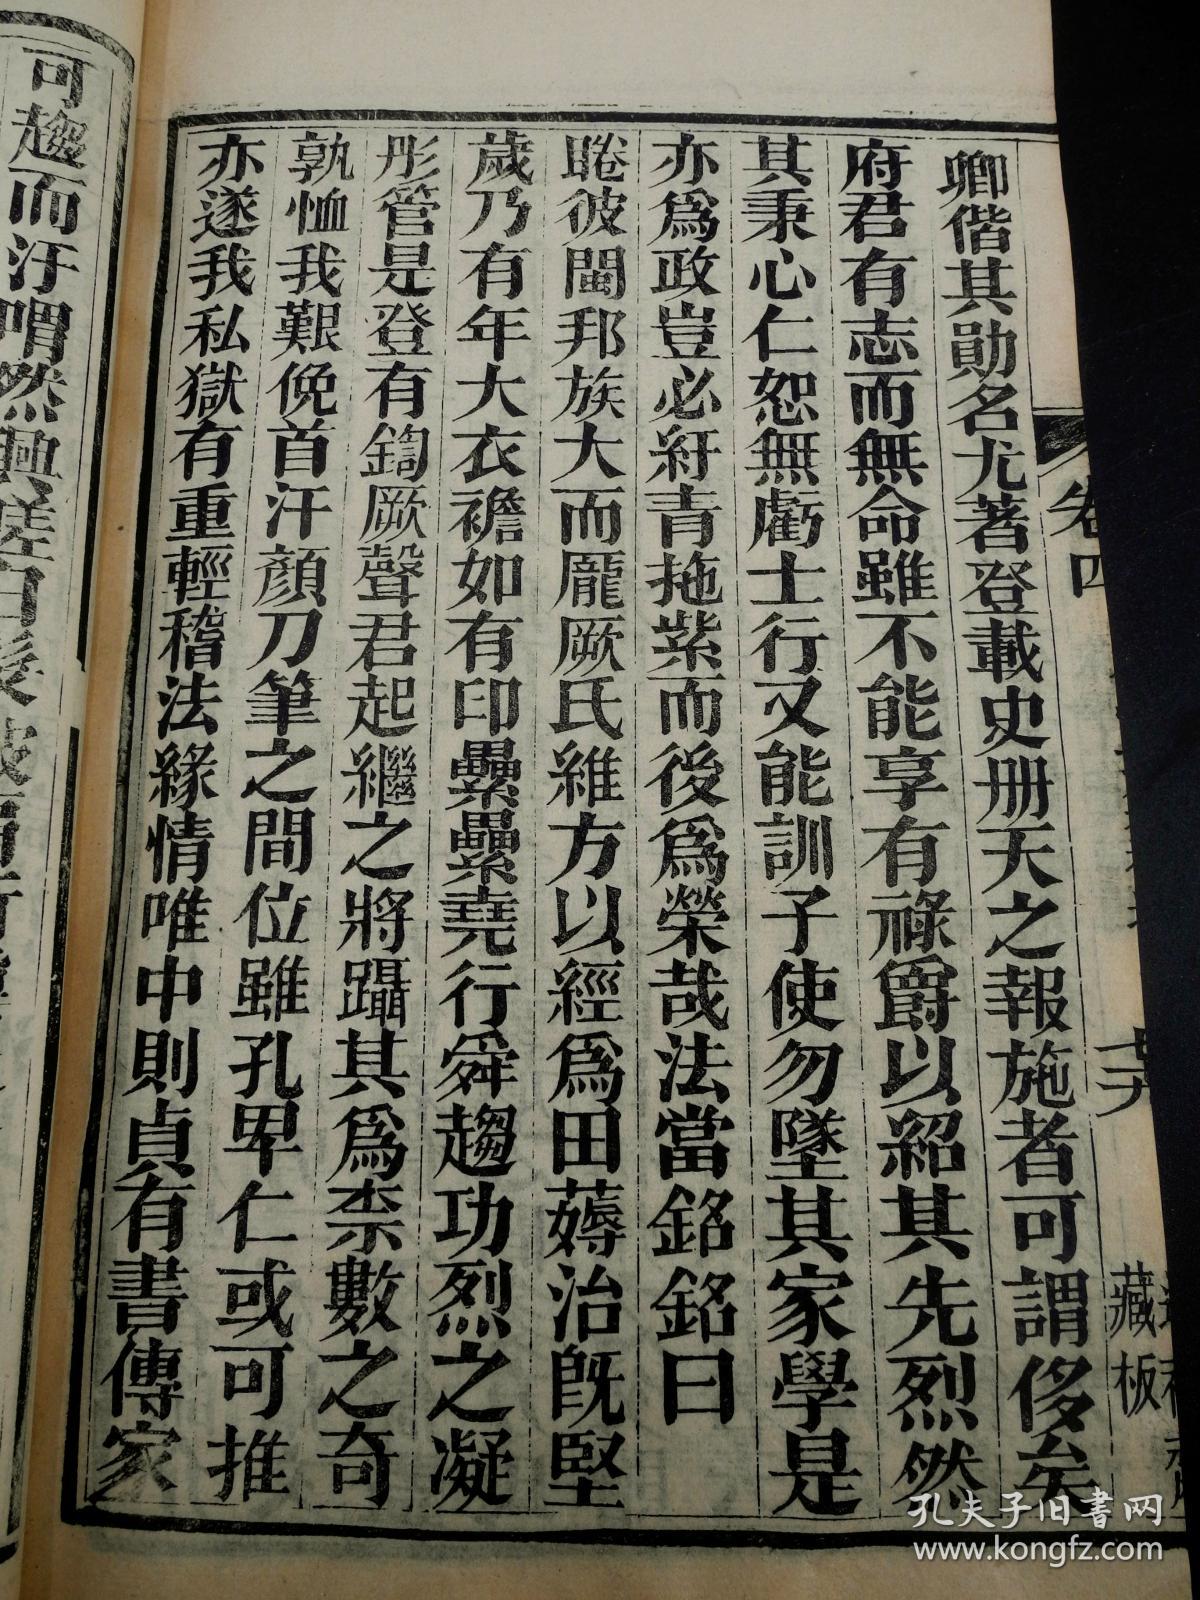 卿偕其勛名尤著登載史册天之報施者可謂侈矣
府君有志而無命雖不能享有祿爵以紹其先烈然
其秉心仁恕無虧士行又能訓子使勿墜其家學是
亦爲政豈必紆青拖紫而後爲榮哉法當銘銘曰
睠彼閩邦族大而龐厥氏維方以經爲田薅治旣堅
歲乃有年大衣襜如有印纍纍堯行舜趨功烈之凝
彤管是登有鍧厥聲君起繼之將躡其爲柰數之奇
孰恤我艱俛首汗顏刀筆之間位雖孔卑仁或可推
亦遂我私獄有重輕稽法緣情唯中則貞有書傳家
可趨而汙喟然興嗟
卷四
藏板
孔夫子旧书网
www.kongfz.com